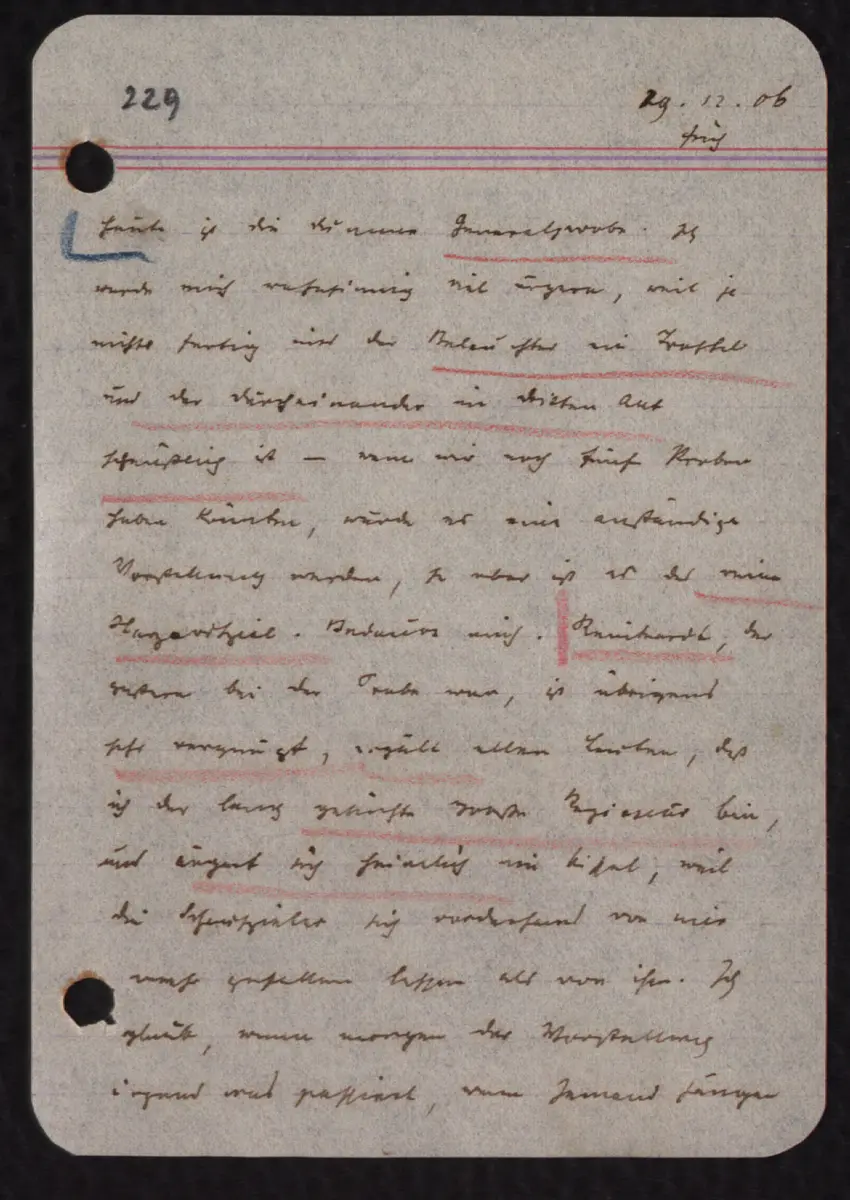 229
29.12.06
früh
Heute ist die dumme Generalprobe. Ich
werde mich wahnsinnig viel ärgern, weil ja
nichts fertig und der Beleuchter ein Trottel
und das Durcheinander im dritten Akt
scheußlich ist — wenn wir noch fünf Proben
haben könnten, würde es eine anständige
Vorstellung werden, so aber ist es das reine
Hazardspiel. Bedaure mich. Reinhardt, der
gestern bei der Probe war, ist übrigens
sehr vergnügt, erzält allen Leuten, daß
ich der lang gesuchte große Regisseur bin,
und ärgert sich heimlich ein bissel, weil
die Schauspieler sich vorderhand von mir
mehr gefallen lassen als von ihm. Ich
glaub, wenn morgen der Vorstellung
irgend was passiert, wenn Jemand hängen